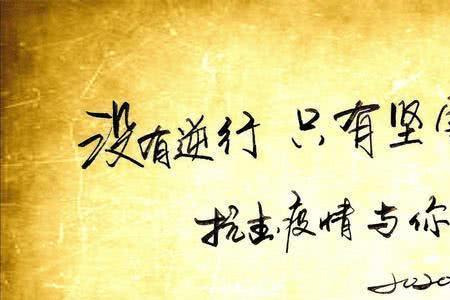 没有逆行 只有坚
抗击疫情与你
2020